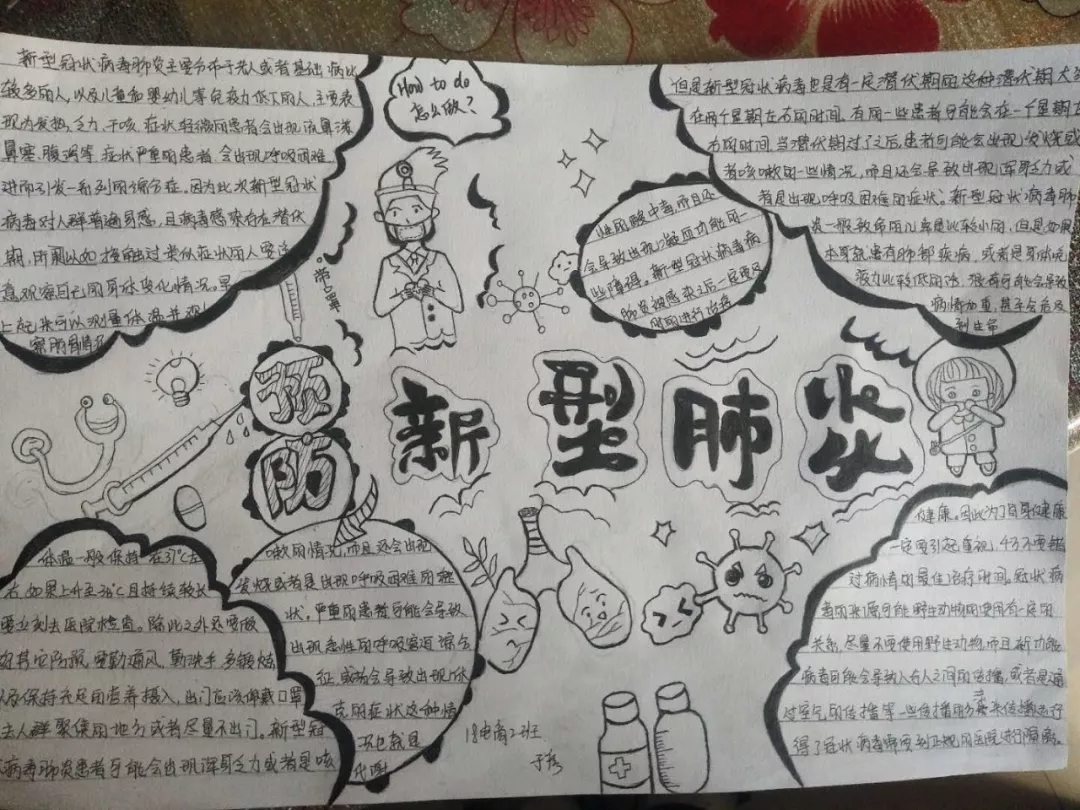 新型冠状病毒肺炎主要分布于老人或者基础病比
较多的人,以及儿童和婴幼儿等免疫力低下的人,主要表
现为发热,乏力,干咳,症状轻微的患者会出现流鼻涕
鼻塞,腹泻等,症状严重的患者,会出现呼吸困难
进而引发一系列的综合征。因为此次新型冠状
病毒对人群普遍易感,且病毒感染存在潜伏
期,所以如接触过类似症状的人要注
意观察自己的身体变化情况。早
上起来可以测量体温并观
察所有情况
体温一般保持在37℃左
右,如果上升至38℃且持续较长
要立刻去医院检查。除此之外还要做
好其它防服,要勤通风,勤洗手,多锻炼
以及保持充足的营养摄入,出门应该佩戴口罩
去人群聚集的地方或者尽量不出门。新型冠
病毒肺炎患者可能会出现浑身乏力或者是咳
嗽的情况,而且还会出现
发烧或者是出现呼吸困难的症
状,严重的患者可能会导致
出现急性的呼吸窘迫综合
征,或者会导致出现休
克的症状这种情
况也就是
代谢
性的酸中毒,而且还
会导致出现凝血功能的一
些障碍。新型冠状病毒病
肺炎被感染之后一定要及
时的进行治疗
但是新型冠状病毒也是有一定潜伏期的这种潜伏期大多
在两个星期左右的时间,有的一些患者可能会在一个星期左
右的时间,当潜伏期过了之后,患者可能会出现发烧或
者咳嗽的一些情况,而且还会导致出现浑身乏力或
者是出现呼吸困难的症状。新型冠状病毒肺
炎一般致命的几率是比较小的,但是如果
本身就患有肺部疾病,或者是身体免
疫力比较低的话,很有可能会导致
病情加重,甚至会危及
到生命
健康。因此为了自身健康
一定要引起重视,千万不要错
过病情的最佳治疗时间,冠状病
毒的来源可能野生动物的使用有一定的
关系,尽量不要使用野生动物,而且新功能
病毒可能会导致人与人之间的传播,或者是通
过空气的传播等一些传播的方式来传播进行
得了冠状病毒需要到正规的医院进行隔离。
How to do
怎么做?
常口罩
预
防
新型肺炎
18电商2班
于彦